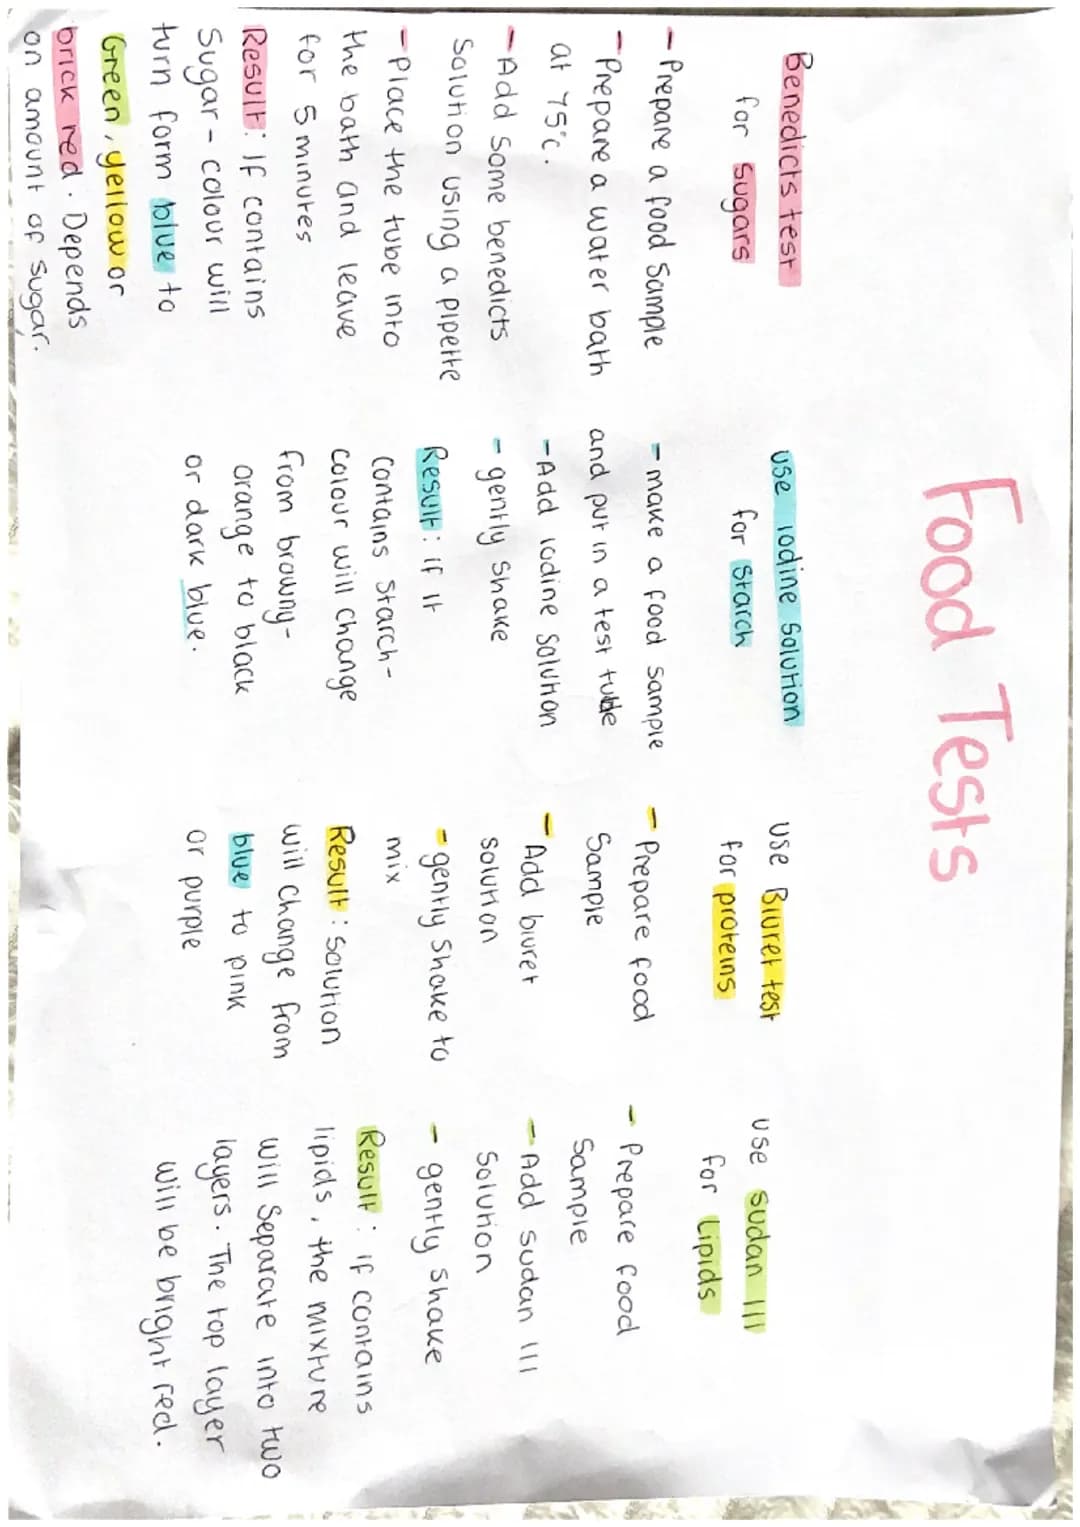 Food Tests
Benedicts test
for sugars
- Prepare a food sample
- Prepare a water bath
at 75°c.
- Add some benedicts
solution using a pipette
- Place the tube into
the bath and leave
for 5 minutes
Result: If contains
Sugar - colour will
turn form blue to
Green, yellow or
brick red. Depends
on amount of sugar.
use iodine solution
for starch
- make a food sample
and put in a test tube
- Add iodine solution
- gently shake
Result: if it
contains starch -
colour will change
from browny-
orange to black
or dark blue.
use Biuret test
for proteins
- Prepare food
Sample
- Add biuret
solution
- gently shake to
mix
Result: solution
will change from
blue to pink
or purple
use sudan III
for Lipids
- Prepare food
Sample
- Add sudan III
Solution
- gently shake
Result: if contains
lipids, the mixture
will separate into two
layers. The top layer
will be bright red.